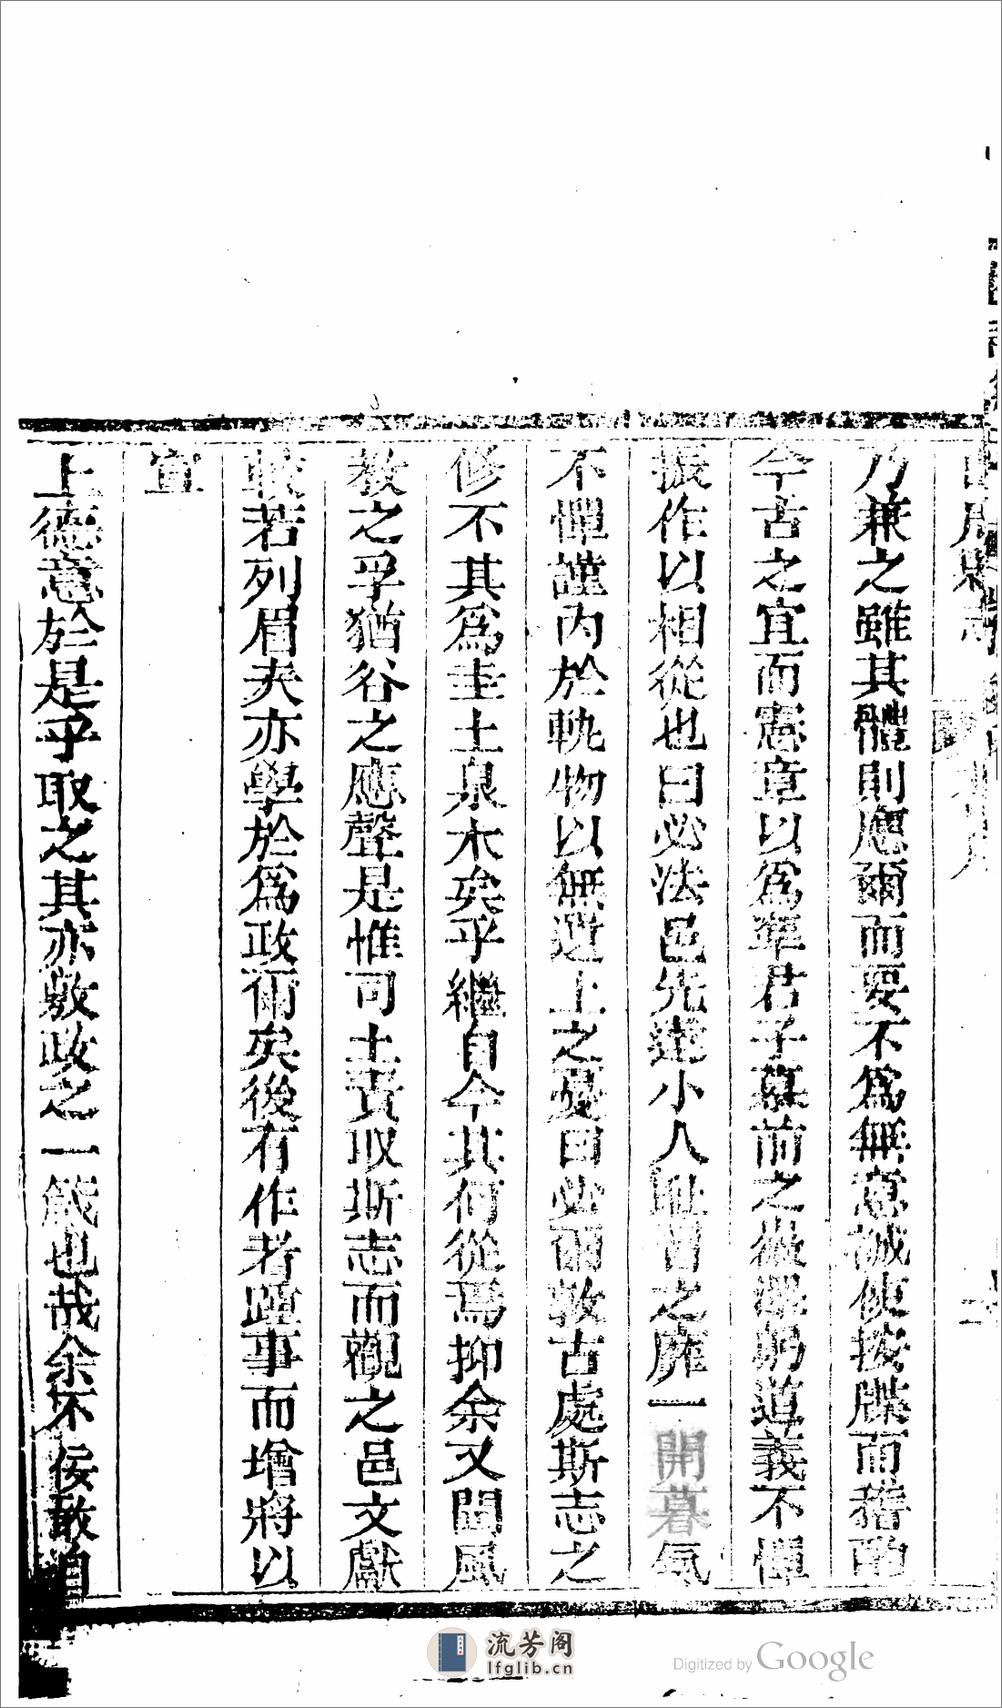 乃兼之雖其體則應爾而要不爲無意誠使按牒而稽
今古之宜而憲章以爲率君子慕前之徽澤躬道義不憚
振作以相從也曰必法邑先達小人恥習之靡一開暮氣
不憚謹内於軌物以無遺上之憂曰必爾敦古處斯志之
修不其爲圭土泉木矣乎繼自今其何從焉抑余又聞風
教之孚猶谷之應聲是惟司土責取斯志而觀之邑文獻
較若列眉夫亦學於爲政術矣後有作者踵事而增將以
宣
上德意於是乎取之其亦敷政之一箴也哉余不佞敢自
二
流芳阁
lfglib.cn
Digitized by Google